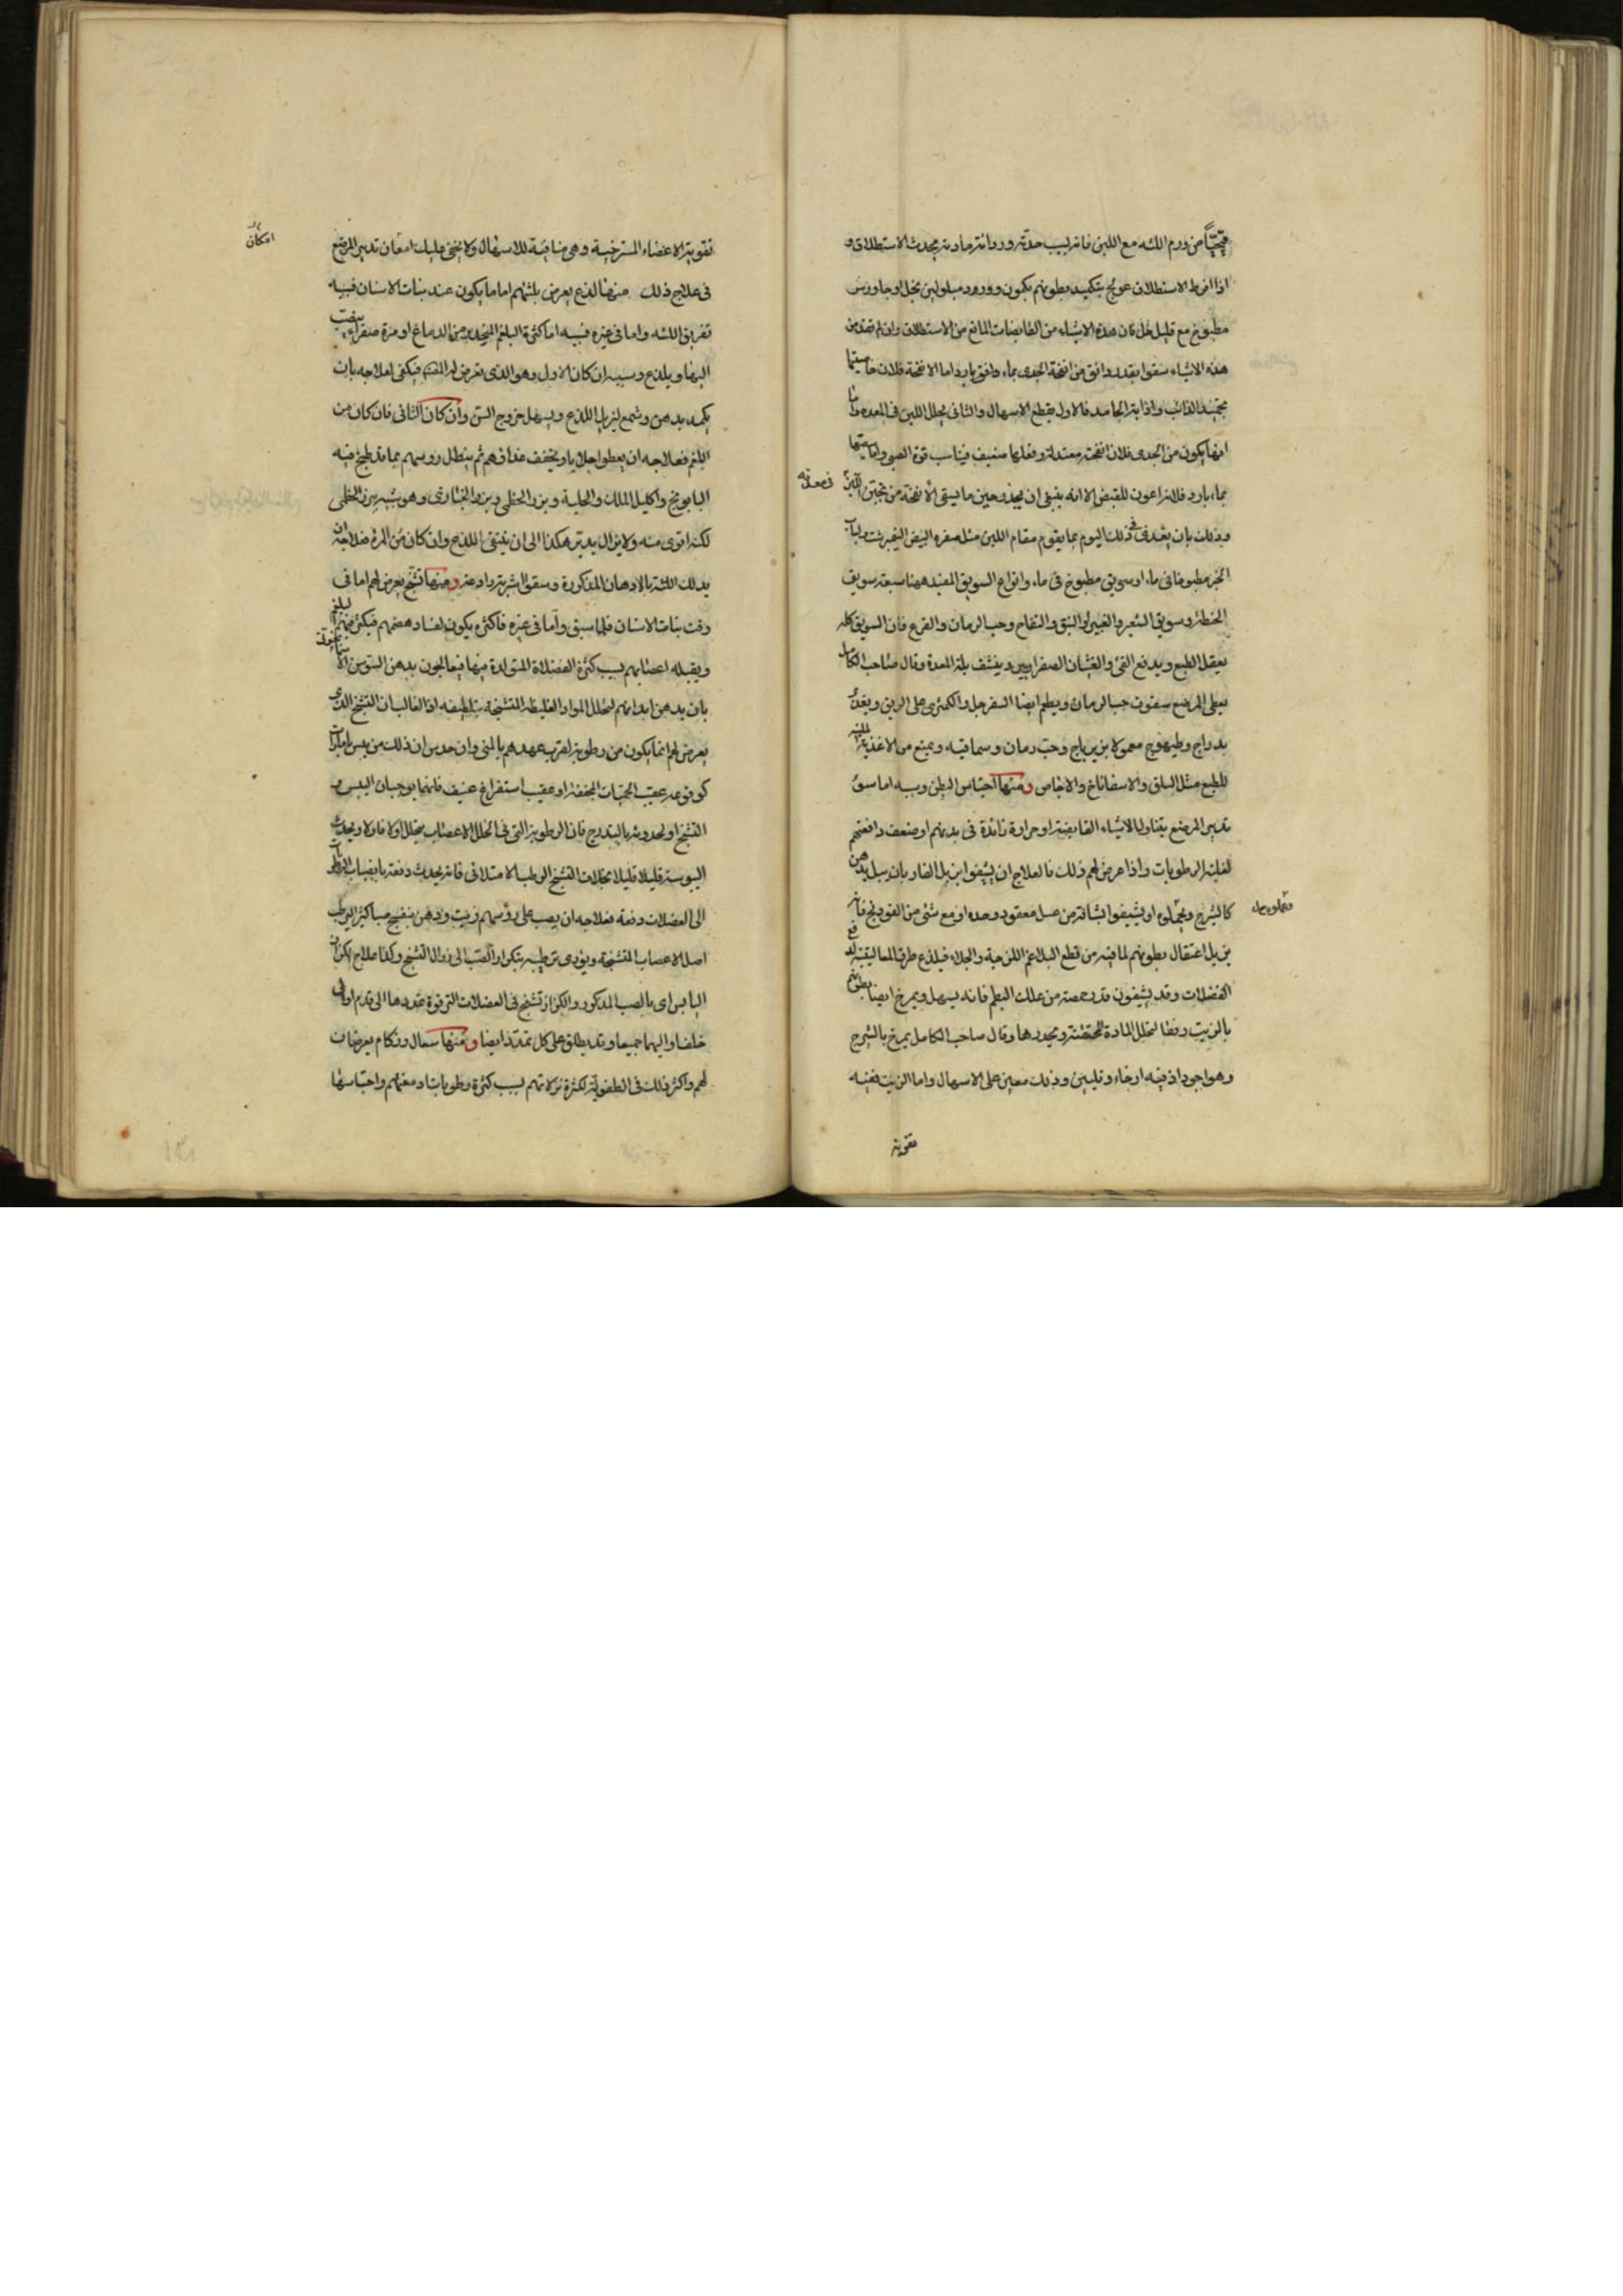 قيحيًّا من ورم اللثه مع اللبن فانه لسبب حدته وردائته مادته يحدث الاستطلاق و
اذا افرط الاستطلاق عولج بتكميد بطونهم بكمون وورود مبلولين بخل او جاورس
مطبوخ مع قليل خل فان هذه الاشياء من القابضات المانع من الاستطلاق وان لم تنجع من
هذه الاشياء سقوا بقدر دانق من انفحة الجدى بماء دافق بارد اما الانفحة فلان خاصيتها
تجميد الذائب واذابة الجامد فالاول يقطع الاسهال والثانى يحلل اللبن فى المعده واما
انها يكون من الجدى فلان انفحته معتدلة وفعلها ضعيف فيناسب قوة الصبى واما سقيها
بماء بارد فلانه اعون للقبض الا انه ينبغى ان يحذر حين ما يسقى الانفحة من تجبن اللبن فى معدته
وذلك بان يغذى فى ذلك اليوم بما يقوم مقام اللبن مثل صفره البيض النيمبرشت ولباب
الخبز مطبوخا فى ماء او سويق مطبوخ فى ماء وانواع السويق المفيد ههنا سبعة سويق
الحنطة وسويق الشعير والغبيرا والنبق والتفاح وحب الرمان والقرع فان السويق كله
يعقل الطبع ويدفع القئ والغثيان الصفراويين وينشف بلة المعدة وقال صاحب الكامل
يعطى المرضع سفوف حب الرمان ويطعم ايضا السفرجل والكمثرى على الريق ويغذى
بدراج وطيهوج معمولا بزيرباج وحب رمان وسماقيه ويمنع من الاغذية الملينه
للطبع مثل السلق والاسفاناخ والاجاص ومنها احتباس البطن وسببه اما سوء
تدبير المرضع بتناولها الاشياء القابضة او حرارة زائدة فى بدنهم او ضعف دافعتهم
لغلبة الرطوبات واذا عرض لهم ذلك فالعلاج ان يشيفوا بزبل الفار بان يبل بدهن
كالشيرج ويحملوه او يشيفوا بشافة من عسل معقود وحده او مع شئ من الفودنج فانه
يزيل اعتقال بطونهم لما فيه من قطع البلاغم اللزجة والجلاء فيلذع طرف المعا لينتبه لدفع
الفضلات وقد يشيفون قدر حمصة من علك البطم فانه يسهل ويمرخ ايضا بطونهم
بالزيت رفقا لتحلل المادة المحتقنة ويحدرها وقال صاحب الكامل يمرخ بالشيرج
وهو اجود اذ فيه ارخاء وتليين وذلك معين على الاسهال واما الزيت ففيه
تقوية
تقوية الاعضاء المسترخية وهى منافية للاسهال ولا يخفى عليك امعان تدبير المرضع
امكان
فى علاج ذلك منها لذع يعرض بلثتهم اما ما يكون عند نبات الاسنان فسببه
تفريق اللثه واما فى غيره فسببه اما كثرة البلغم المنحدر من الدماغ او مرة صفراء ينصب
اليها ويلذع وسببه ان كان الاول وهو الذى يعرض فيكفى لعلاجه بان
يكمد بدهن وشمع ليزيل اللذع ويسهل خروج السن وان كان الثانى فان كان من
البلغم فعلاجه ان يعطوا جلابا ويخفف غذاؤهم ثم ينطل رؤسهم بما قد طبخ فيه
البابونج واكليل الملك والحلبة وبزر الخطمى وبزر الخبازى وهو شبيه ببزر الخطمى
لكنه اقوى منه ولا يزال يدبر هكذا الى ان ينتفى اللذع وان كان من المرة فعلاجه ان
يدلك اللثة بالادهان المذكورة وسقوا شربة رادعة ومنها تشنج يعرض لهم اما فى
وقت نبات الاسنان فلما سبق واما فى غيره فاكثره يكون لفساد هضمهم فيكثر فيهم البلغم
ويقبله اعصابهم لسبب كثرة الفضلة المتولدة فيها فيعالجون بدهن السوسن الاسمانجونى
بان يدهن ابدانهم لتحلل المواد الغليظة المتشنجة بتلطيفه اذ الغالب ان التشنج الذى
يعرض لهم انما يكون من رطوبة لقرب عهدهم بالمنى وان حدس ان ذلك من يبس بامارات
كوقوعه عقيب الحميات المجففة او عقيب استفراغ عنيف فانهما يوجبان اليبس و
التشنج او لحدوثه بالتدريج فان الرطوبة التى فى تخلل الاعصاب يتحلل اولا فاولا ويحدث
اليبوسة قليلا قليلا بخلاف التشنج الرطب الامتلائى فانه يحدث دفعة بانصباب الرطوبات
الى العضلات دفعة فعلاجه ان يصب على رؤسهم زيت ودهن بنفسج صبا كثيرا ليرطب
اصل الاعصاب المتشنجة ويؤدى ترطيبه بتكرار الصب الى زوال التشنج وكذا علاج الكزاز
اليابس اى بالصب المذكور والكزاز تشنج فى العضلات الترقوة تمددها الى قدام او الى
خلف او اليهما جميعا وقد يطلق على كل تمدد ايضا ومنها سعال وزكام يعرضان
لهم واكثر ذلك فى الطفولية لكثرة نزلاتهم لسبب كثرة رطوبات ادمغتهم واحتباسها